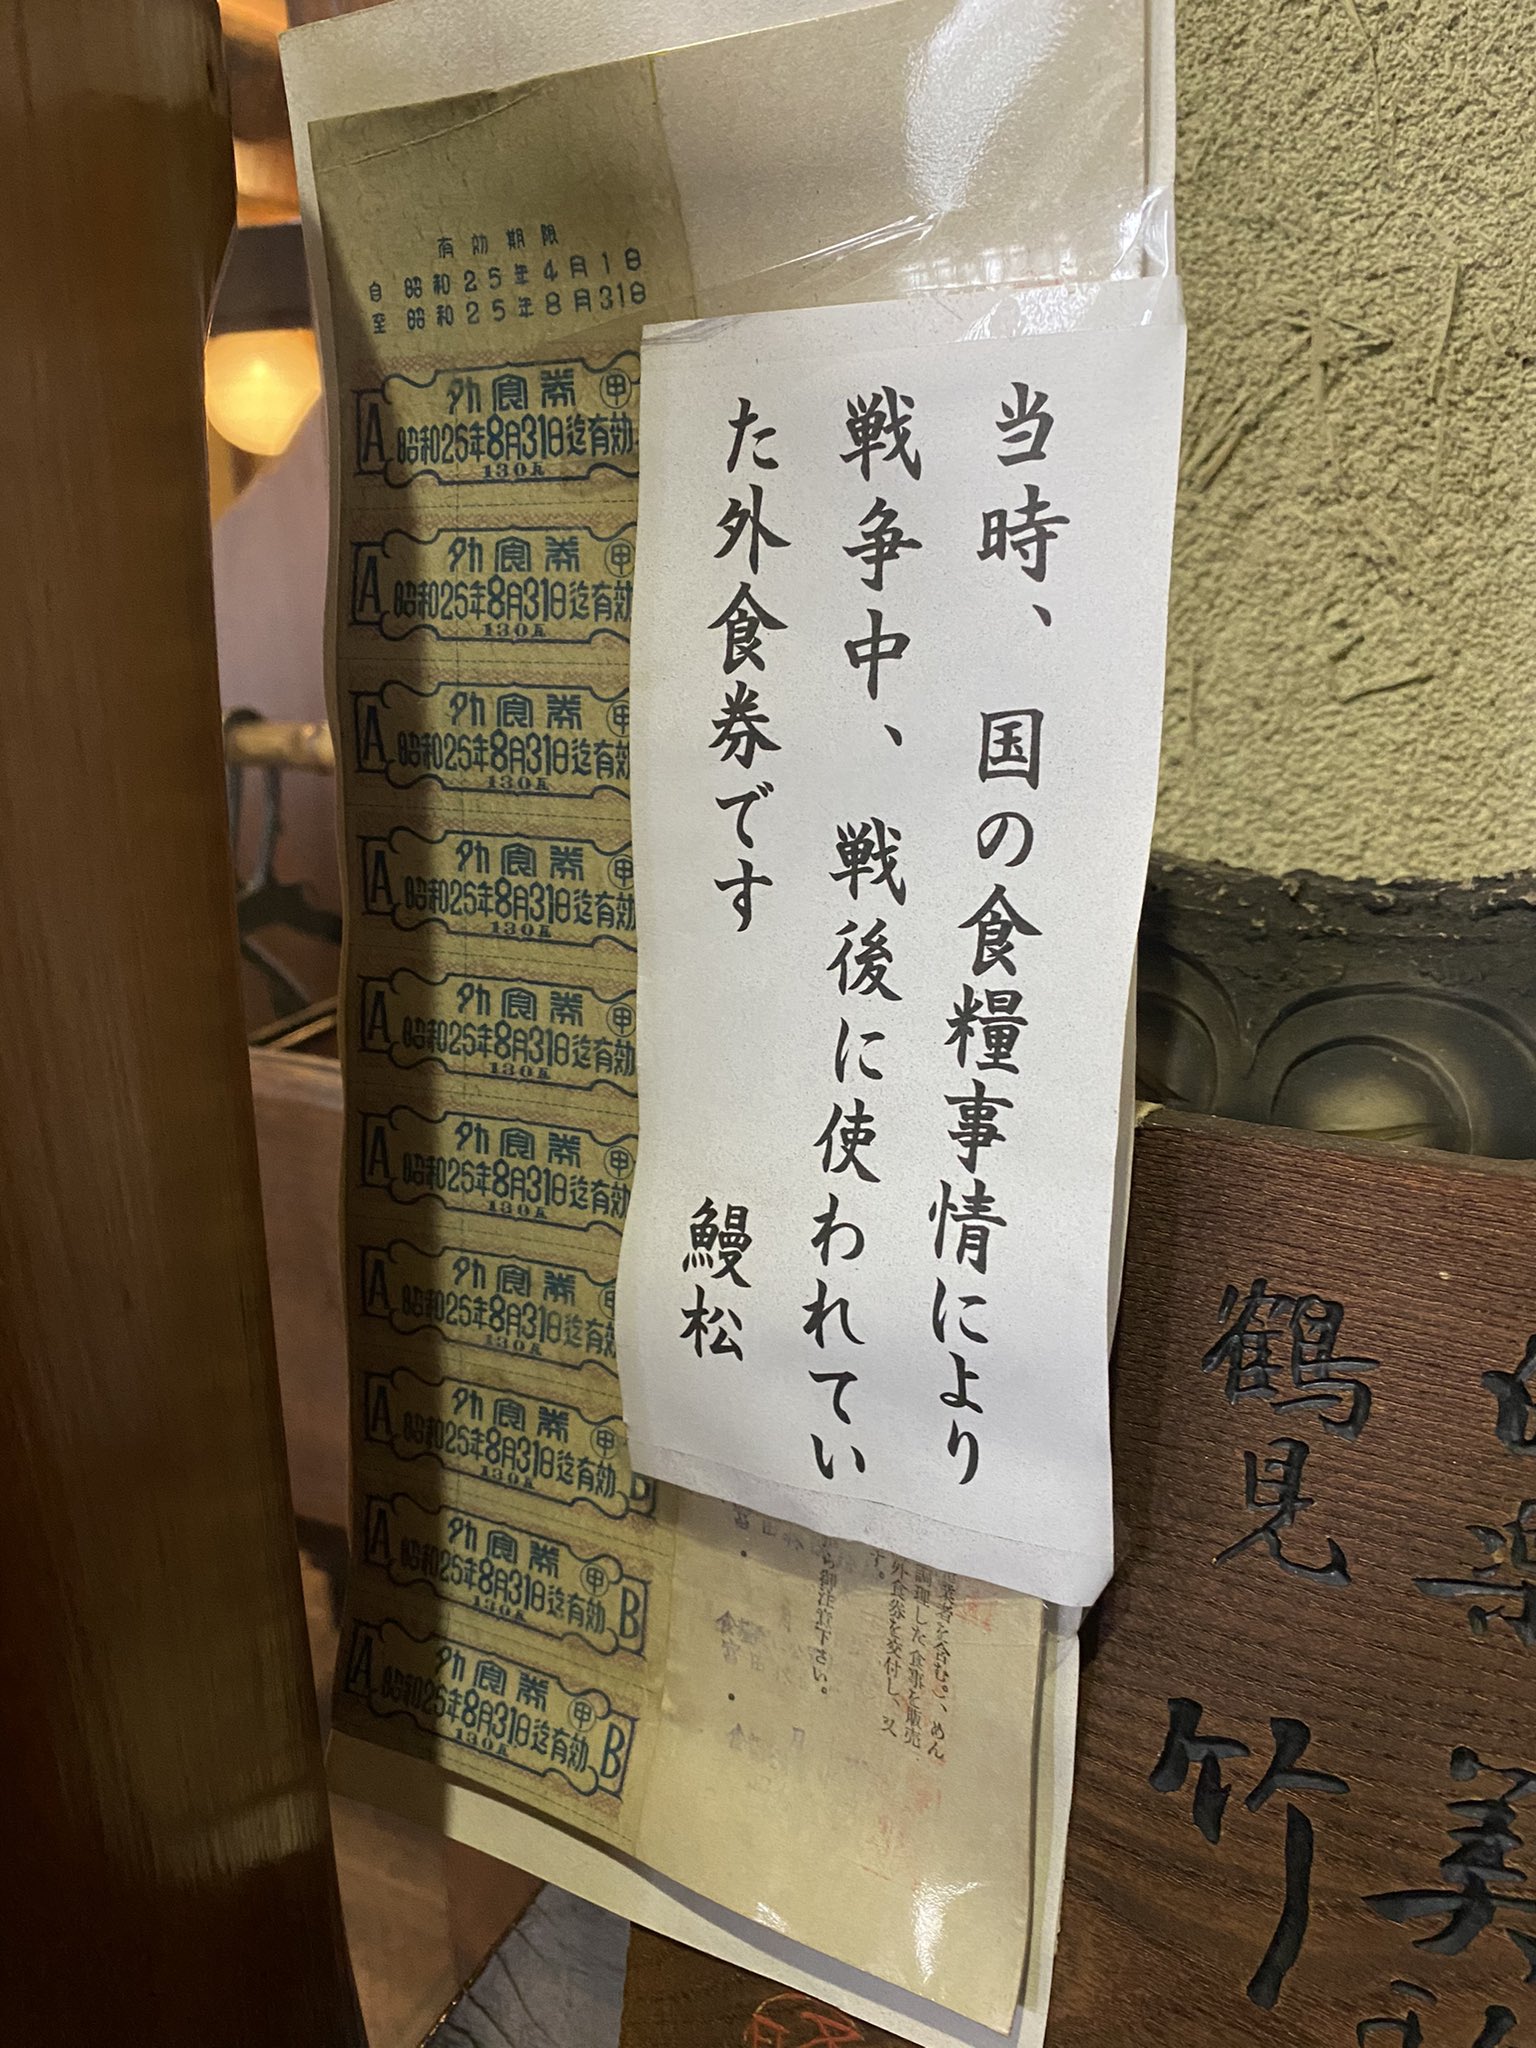 有効期限
自 昭和25年4月1日
至 昭和25年8月31日
A 外食券 甲
昭和25年8月31日迄有効
130瓦
A 外食券 甲
昭和25年8月31日迄有効
130瓦
A 外食券 甲
昭和25年8月31日迄有効
130瓦
A 外食券 甲
昭和25年8月31日迄有効
130瓦
A 外食券 甲
昭和25年8月31日迄有効
130瓦
A 外食券 甲
昭和25年8月31日迄有効
130瓦
A 外食券 甲
昭和25年8月31日迄有効
130瓦
A 外食券 甲 B
昭和25年8月31日迄有効
130瓦
A 外食券 甲 B
昭和25年8月31日迄有効
130瓦
A 外食券 甲 B
昭和25年8月31日迄有効
130瓦
当時、国の食糧事情により
戦争中、戦後に使われてい
た外食券です
鰻松
業者を含む。)、めん
調理した食事を販売
外食券を交付し、又
す。
ら御注意下さい。
鶴見
竹
美